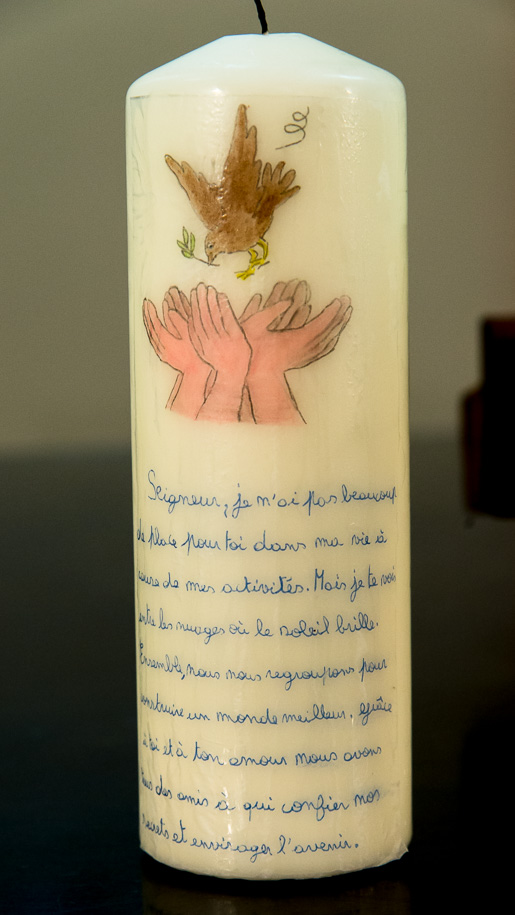 Seigneur, je n'ai pas beaucoup
de place pour toi dans ma vie à
cause de mes activités. Mais je te vois
entre les nuages où le soleil brille.
Ensemble, nous nous regroupons pour
construire un monde meilleur, grâce
à toi et à ton amour nous avons
tous des amis à qui confier nos
secrets et envisager l'avenir.